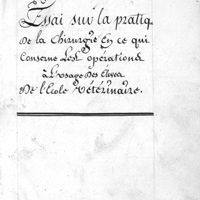 Essai sur la pratiq
De la Chirurgie En ce qui
Conserne Les opérations
à L'usage Des Eleves
De l'Ecole Vétérinaire.